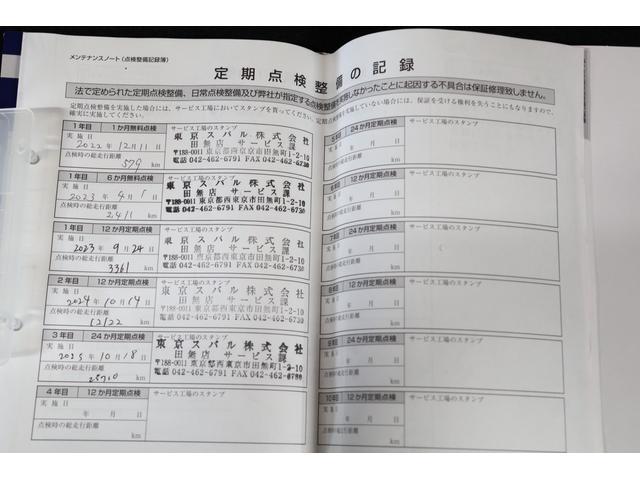 メンテナンスノート（点検整備記録簿）
定期点検整備の記録
法で定められた定期点検整備、日常点検整備及び弊社が指定する点検整備を実施しなかったことに起因する不具合は保証修理致しません。
定期点検整備を実施した場合には、サービス工場においてスタンプを貰ってください。定期
確実に実施してください。
実施していない場合には、保証を受ける権利を失うことにもなりますので、
1年目 1か月無料点検 サービス工場のスタンプ
実施日
2022年12月11日
点検時の総走行距離
579 km
東京スバル株式会社
田無店 サービス課
〒188-0011 東京都西東京市田無町1-2-10
電話 042-462-6791 FAX 042-462-6730
1年目 6か月無料点検 サービス工場のスタンプ
実施日
2023年4月1日
点検時の総走行距離
2411 km
東京スバル株式会社
田無店 サービス課
〒188-0011 東京都西東京市田無町1-2-10
電話 042-462-6791 FAX 042-462-6730
1年目 12か月定期点検 サービス工場のスタンプ
実施日
2023年9月24日
点検時の総走行距離
3361 km
東京スバル株式会社
田無店 サービス課
〒188-0011 東京都西東京市田無町1-2-10
電話 042-462-6791 FAX 042-462-6730
2年目 12か月定期点検 サービス工場のスタンプ
実施日
2024年10月14日
点検時の総走行距離
12122 km
東京スバル株式会社
田無店 サービス課
〒188-0011 東京都西東京市田無町1-2-10
電話 042-462-6791 FAX 042-462-6730
3年目 24か月定期点検 サービス工場のスタンプ
実施日
2025年10月18日
点検時の総走行距離
km
東京スバル株式会社
田無店 サービス課
〒188-0011 東京都西東京市田無町1-2-10
電話 042-462-6791 FAX 042-462-6730
4年目 12か月定期点検 サービス工場のスタンプ
実施日
年 月 日
点検時の総走行距離
km
24か月定期点検 サービス工場のスタンプ
実施日
年 月 日
点検時の総走行距離
km
12か月定期点検 サービス工場のスタンプ
実施日
年 月 日
点検時の総走行距離
km
24か月定期点検 サービス工場のスタンプ
実施日
年 月 日
点検時の総走行距離
km
12か月定期点検 サービス工場のスタンプ
実施日
年 月 日
点検時の総走行距離
km
24か月定期点検 サービス工場のスタンプ
実施日
年 月 日
点検時の総走行距離
km
12か月定期点検 サービス工場のスタンプ
実施日
年 月 日
点検時の総走行距離
km